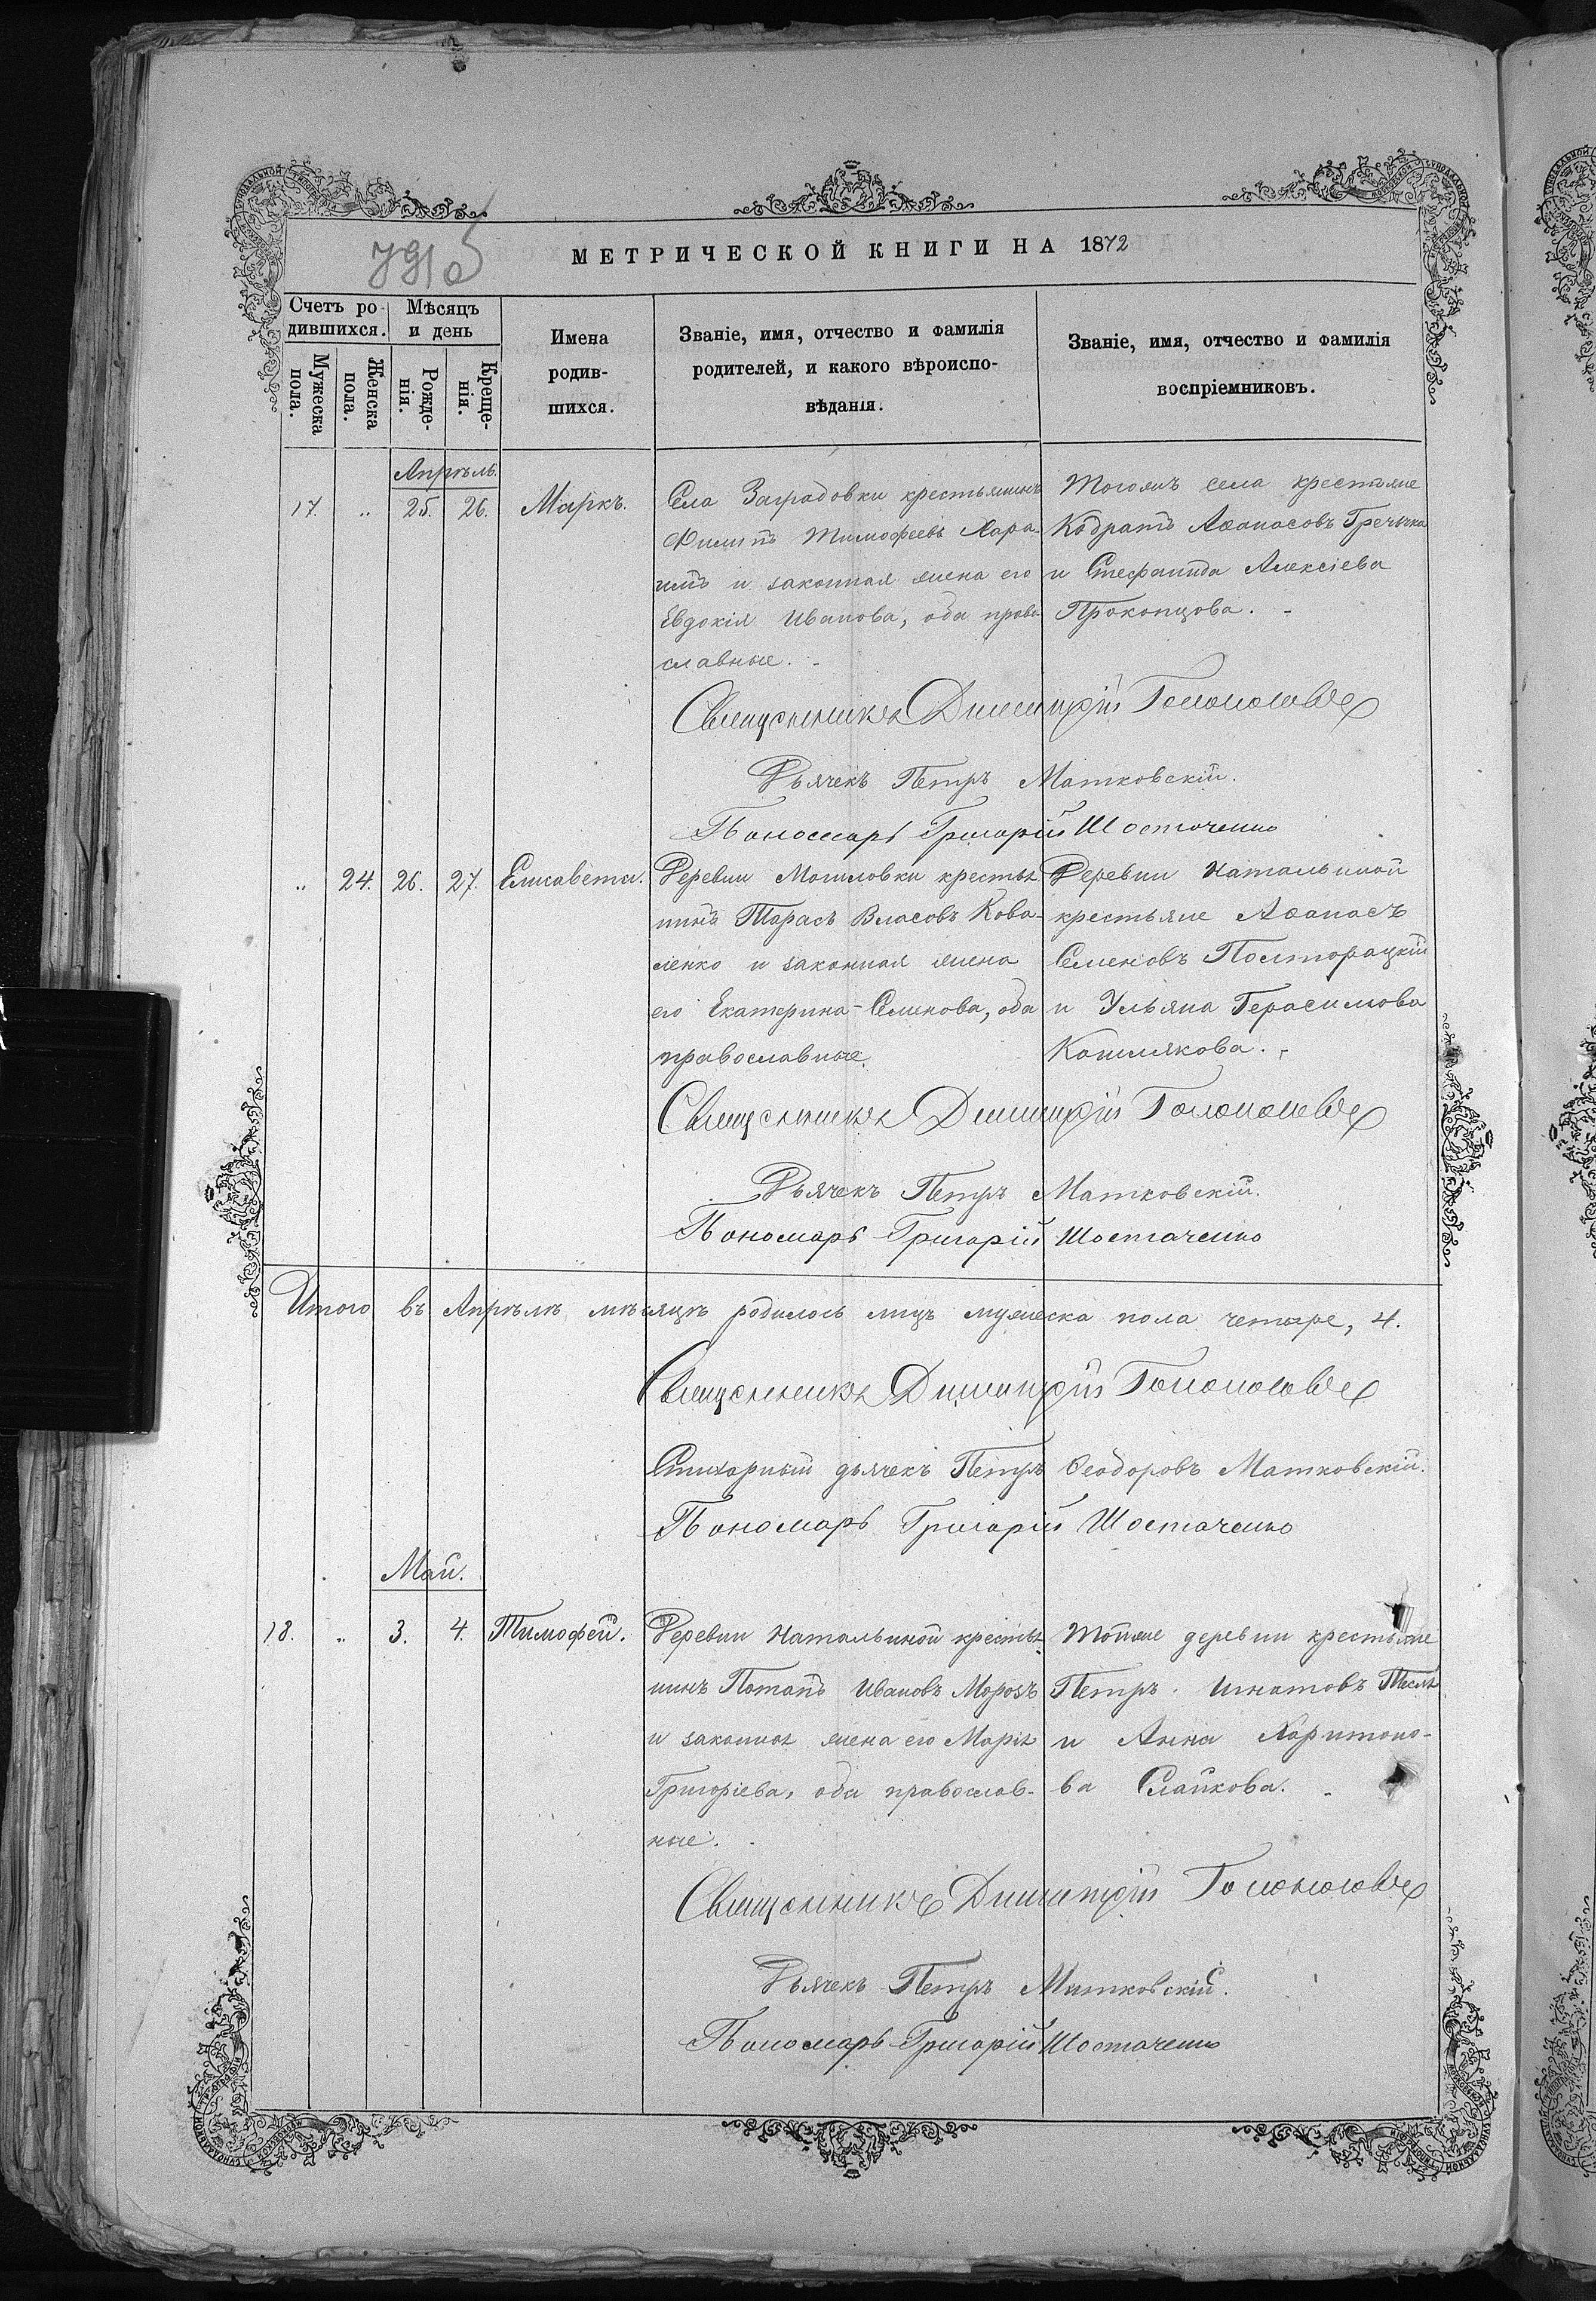 МЕТРИЧЕСКОЙ КНИГИ НА 1872
Счетъ ро-
дившихся.
Мѣсяцъ
и день
Мужеска
пола.
Женска
пола.
Рожде-
нія.
Креще-
нія.
Имена
родив-
шихся.
Званіе, имя, отчество и фамилія
родителей, и какого вѣроиспо-
вѣданія.
Званіе, имя, отчество и фамилія
воспріемниковъ.
Апрѣль.
17. „ 25. 26. Маркъ.
Села Заградовки крестьянинъ
Филипъ Тимофеевъ Хара-
имъ и законная жена его
Евдокія Иванова, оба право-
славные.
Тогожъ села крестьяне
Кодратъ Аѳанасовъ Гречька
и Стефанида Алексіева
Прокопцова.
Священникъ Димитрій
Дьячекъ Петръ Матковскій.
Пономарь Григорій Шостаченко
„ 24. 26. 27. Елисавета.
Деревни Могиловки крестья-
нинъ Тарасъ Власовъ Кова-
ленко и законная жена
его Екатерина Семенова, оба
православные.
Деревни Натальиной
крестьяне Аѳанасъ
Семеновъ Полторацкій
и Ульяна Герасимова
Кошлякова.
Священникъ Димитрій
Дьячекъ Петръ Матковскій.
Пономарь Григорій Шостаченко
Итого въ Апрѣлѣ мѣсяцѣ родилось лицъ мужеска пола четыре, 4.
Священникъ Димитрій
Стихарный дьячекъ Петръ Ѳеодоровъ Матковскій.
Пономарь Григорій Шостаченко
Май.
18. „ 3. 4. Тимофей.
Деревни Натальиной крестья-
нинъ Потапъ Ивановъ Морозъ
и законная жена его Марія
Григоріева, оба православ-
ные.
Тойже деревни крестьяне
Петръ Игнатовъ Тесля
и Анна Харитоно-
ва Слайкова.
Священникъ Димитрій
Дьячекъ Петръ Матковскій.
Пономарь Григорій Шостаченко